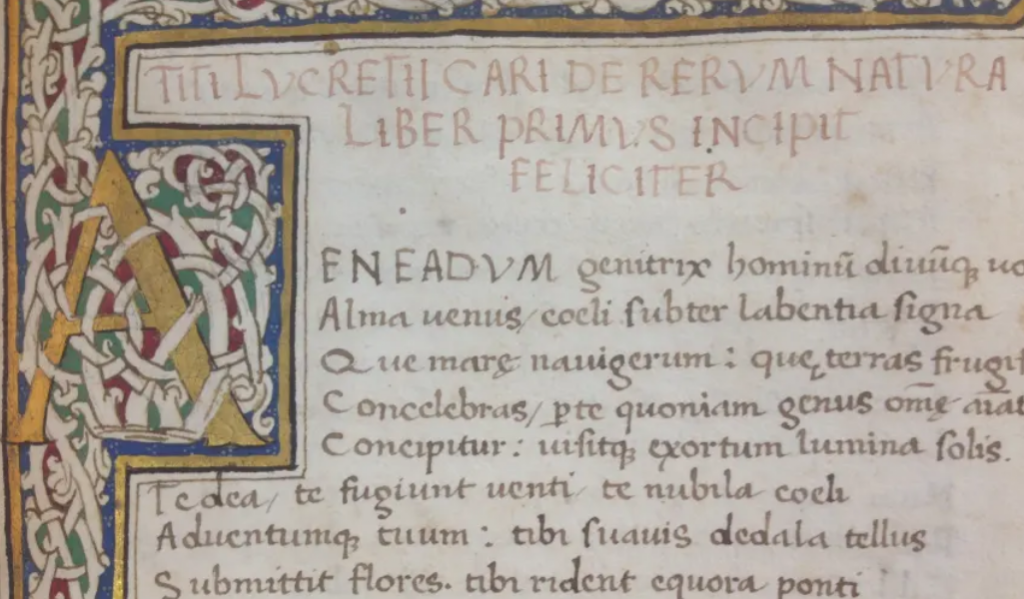 TITI LVCRETII CARI DE RERVM NATVRA
LIBER PRIMVS INCIPIT
FELICITER
AENEADVM genitrix hominū diuūqꝫ uo
Alma uenus/ coeli subter labentia signa
Que marę nauigerum : quę terras frugif
Concelebras/ ꝑte quoniam genus om̄ę aīat
Concipitur : uisitqꝫ exortum lumina solis.
Te dea/ te fugiunt uenti/ te nubila coeli
Aduentumqꝫ tuum : tibi suauis dedala tellus
Submittit flores. tibi rident equora ponti